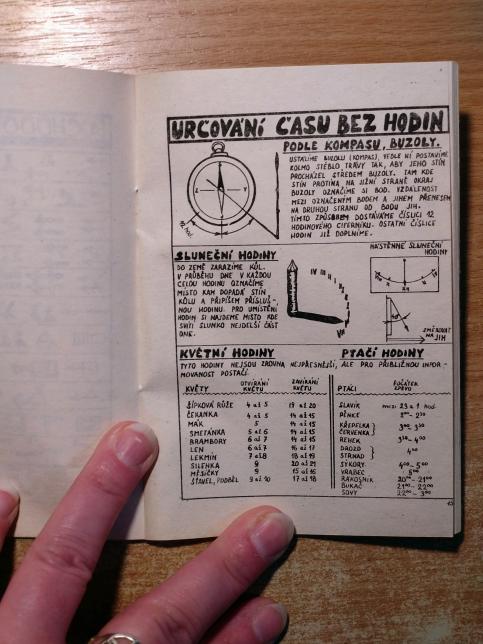 URČOVÁNÍ ČASU BEZ HODIN
PODLE KOMPASU, BUZOLY.
USTÁLÍME BUZOLU (KOMPAS), VEDLE NÍ POSTAVÍME
KOLMO STÉBLO TRÁVY TAK, ABY JEHO STÍN
PROCHÁZEL STŘEDEM BUZOLY. TAM KDE
STÍN PROTÍNÁ NA JIŽNÍ STRANĚ OKRAJ
BUZOLY OZNAČÍME SI BOD. VZDÁLENOST
MEZI OZNAČENÝM BODEM A JIHEM PŘENESEM
NA DRUHOU STRANU OD BODU JIH.
TÍMTO ZPŮSOBEM DOSTÁVÁME ČÍSLICI 12
HODINOVÉHO CIFERNÍKU. OSTATNÍ ČÍSLICE
HODIN JIŽ DOPLNÍME.
12 hod.
SLUNEČNÍ HODINY
DO ZEMĚ ZARAZÍME KŮL.
V PRŮBĚHU DNE V KAŽDOU
CELOU HODINU OZNAČÍME
MÍSTO KAM DOPADÁ STÍN
KŮLU A PŘIPÍŠEM PŘÍSLUŠ-
NOU HODINU. PRO UMÍSTĚNÍ
HODIN SI NAJDEME MÍSTO KDE
SVÍTÍ SLUNKO NEJDELŠÍ ČÁST
DNE.
NÁSTĚNNÉ SLUNEČNÍ
HODINY
SMĚROVAT
NA JIH
KVĚTNÍ HODINY
PTAČÍ HODINY
TYTO HODINY NEJSOU ZROVNA NEJPŘESNĚJŠÍ, ALE PRO PŘIBLIŽNOU INFOR-
MOVANOST POSTAČÍ.
KVĚTY OTVÍRÁNÍ KVĚTU ZAVÍRÁNÍ KVĚTU
ŠÍPKOVÁ RŮŽE 4 až 5 19 až 20
ČEKANKA 4 až 5 14 až 15
MÁK 5 14 až 15
SMETÁNKA 5 až 6 14 až 15
BRAMBORY 6 až 7 14 až 15
LEN 6 až 7 16 až 17
LEKNÍN 7 až 8 18 až 19
SILENKA 9 20 až 21
MĚSÍČKY 9 15 až 16
ŠŤAVEL, PODBĚL 9 až 10 17 až 18
PTÁCI POČÁTEK ZPĚVU
SLAVÍK mezi 23 a 1 hod.
PĚNICE
KŘEPELKA
ČERVENKA
REHEK 3³⁰ - 4⁰⁰
DROZD
STRNAD 4⁰⁰
SÝKORY 4⁰⁰ - 5⁰⁰
VRABEC 5⁰⁰
RÁKOSNÍK 20⁰⁰ - 21⁰⁰
BUKAČ 21⁰⁰ - 22⁰⁰
SOVY 22⁰⁰ - 3⁰⁰